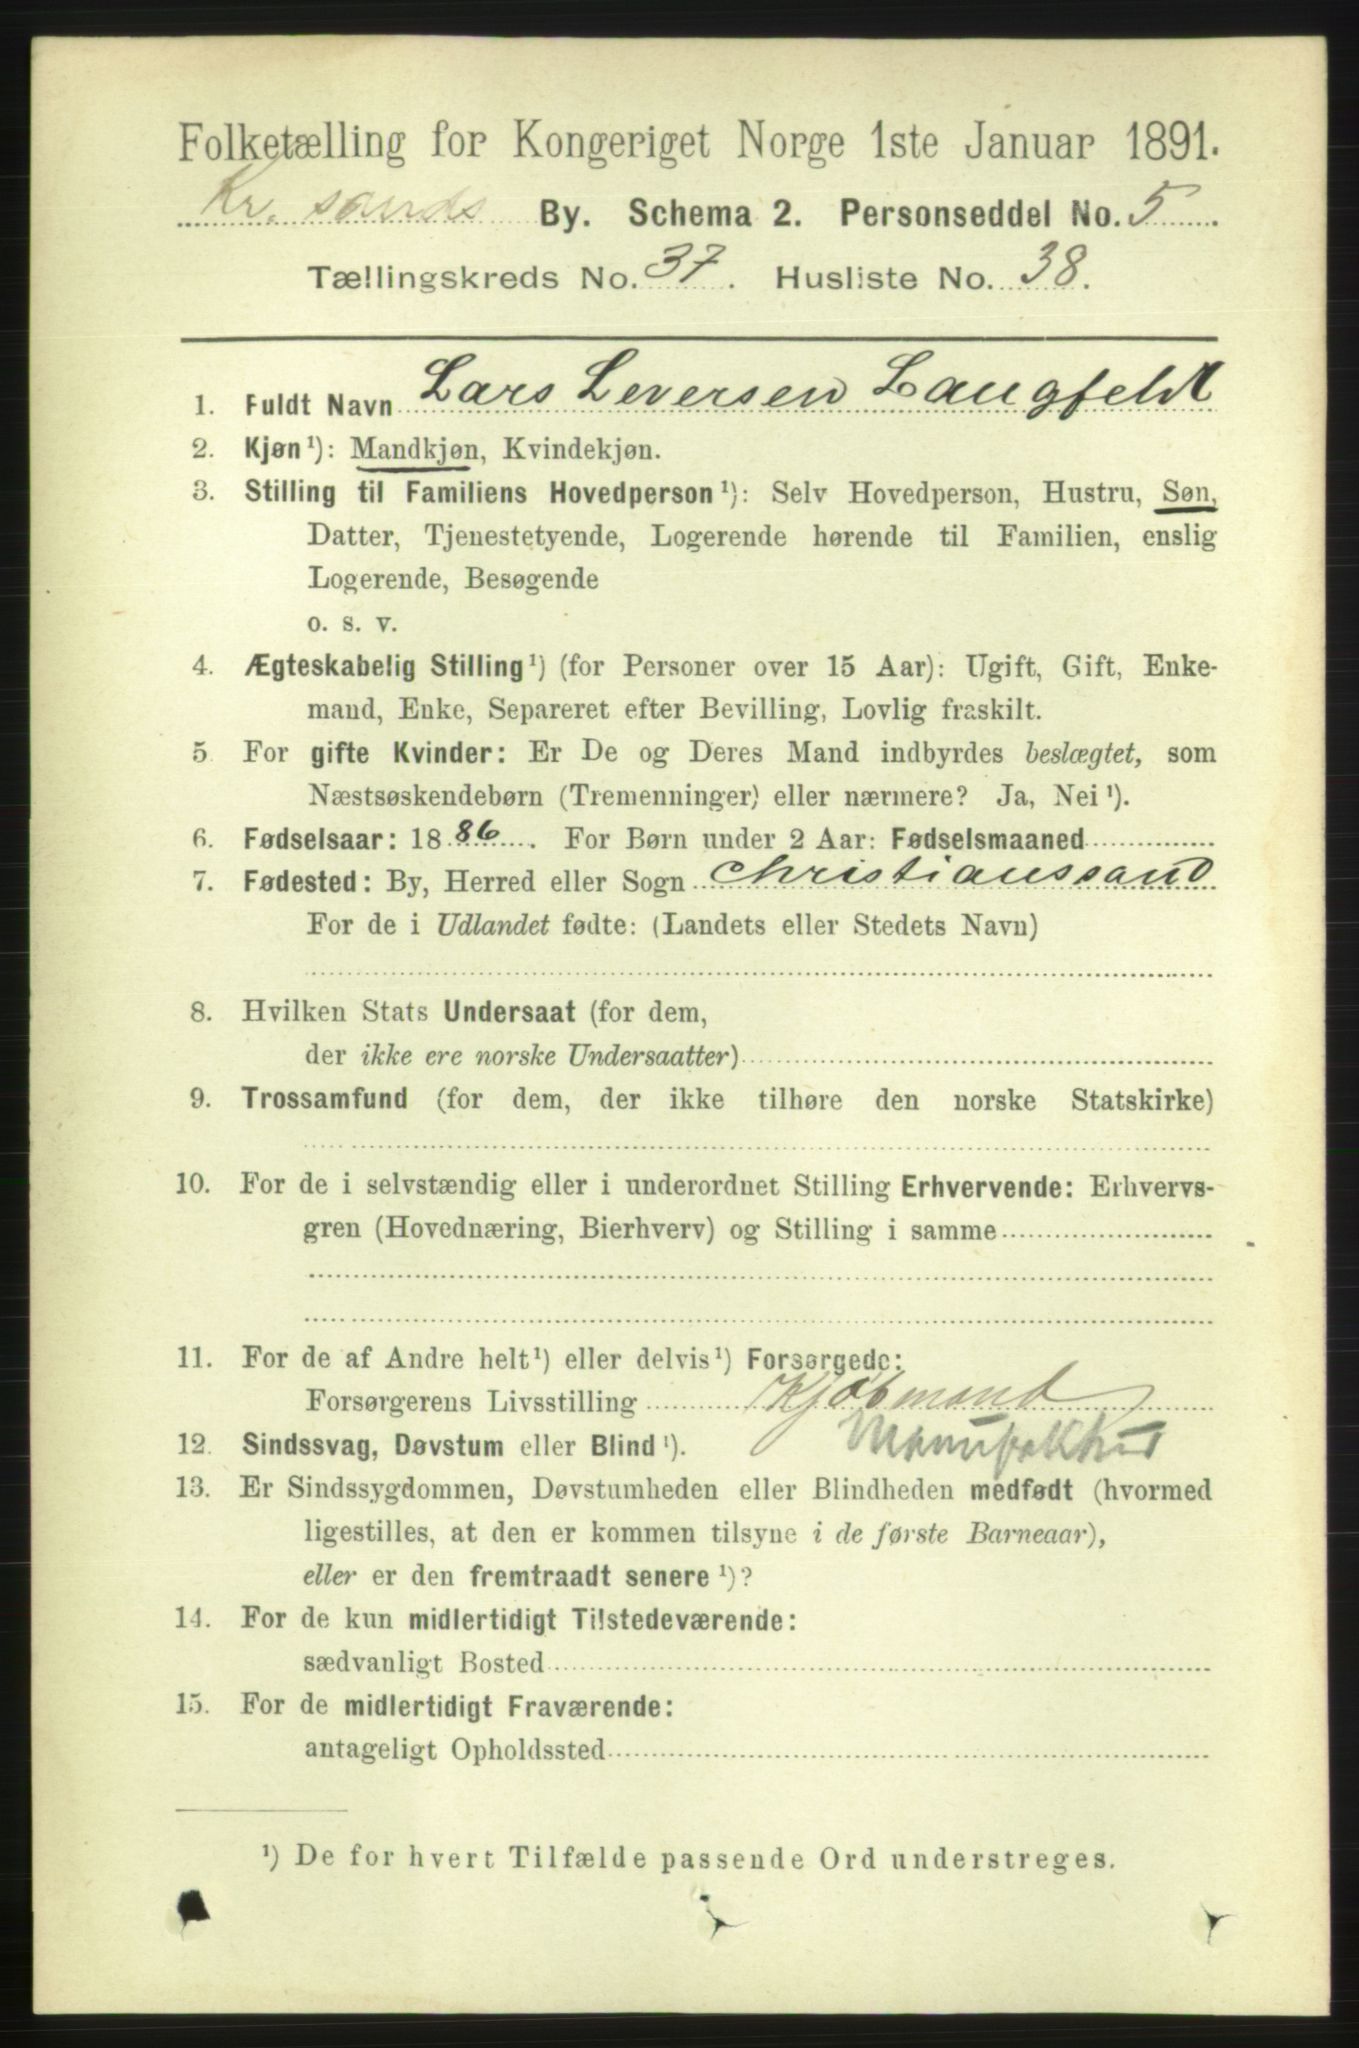 Folketælling for Kongeriget Norge 1ste Januar 1891.
Kr. sands By. Schema 2. Personseddel No. 5
Tællingskreds No. 37. Husliste No. 38.
1. Fuldt Navn Lars Leversen Langfeldt
2. Kjøn ¹): Mandkjøn, Kvindekjøn.
3. Stilling til Familiens Hovedperson ¹): Selv Hovedperson, Hustru, Søn,
Datter, Tjenestetyende, Logerende hørende til Familien, enslig
Logerende, Besøgende
o. s. v.
4. Ægteskabelig Stilling ¹) (for Personer over 15 Aar): Ugift, Gift, Enke-
mand, Enke, Separeret efter Bevilling, Lovlig fraskilt.
5. For gifte Kvinder: Er De og Deres Mand indbyrdes beslægtet, som
Næstsøskendebørn (Tremenninger) eller nærmere? Ja, Nei ¹).
6. Fødselsaar: 1886. For Børn under 2 Aar: Fødselsmaaned
7. Fødested: By, Herred eller Sogn Christianssand
For de i Udlandet fødte: (Landets eller Stedets Navn)
8. Hvilken Stats Undersaat (for dem,
der ikke ere norske Undersaatter)
9. Trossamfund (for dem, der ikke tilhøre den norske Statskirke)
10. For de i selvstændig eller i underordnet Stilling Erhvervende: Erhvervs-
gren (Hovednæring, Bierhverv) og Stilling i samme
11. For de af Andre helt ¹) eller delvis ¹) Forsørgede:
Forsørgerens Livsstilling Kjøbmand
12. Sindssvag, Døvstum eller Blind ¹).
13. Er Sindssygdommen, Døvstumheden eller Blindheden medfødt (hvormed
ligestilles, at den er kommen tilsyne i de første Barneaar),
eller er den fremtraadt senere ¹)?
14. For de kun midlertidigt Tilstedeværende:
sædvanligt Bosted
15. For de midlertidigt Fraværende:
antageligt Opholdssted
¹) De for hvert Tilfælde passende Ord understreges.